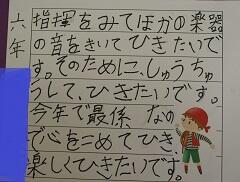 六年
指揮をみてほかの楽器
の音をきいてひきたいで
す。そのために、しゅうちゅ
うして、ひきたいです。
今年で最係なの
で心をこめてひき、
楽しくひきたいです。